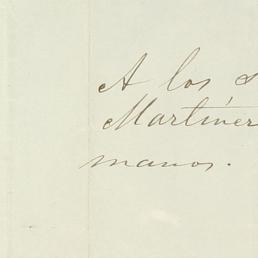 A los S
Martíner
manos.